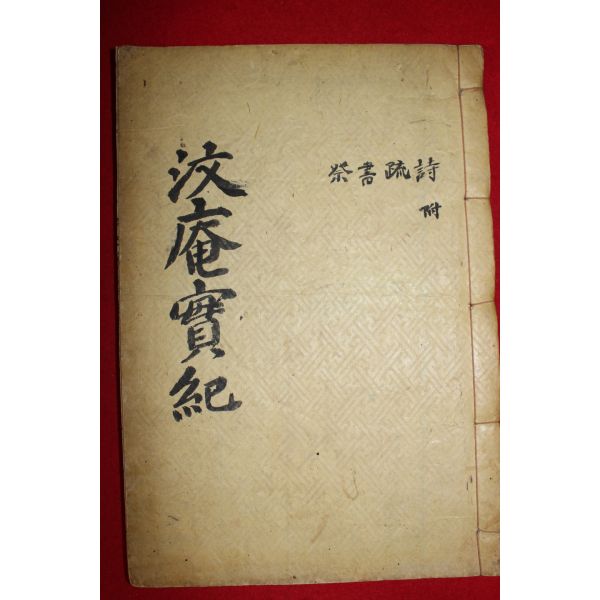 汶庵實紀
詩疏書祭
附